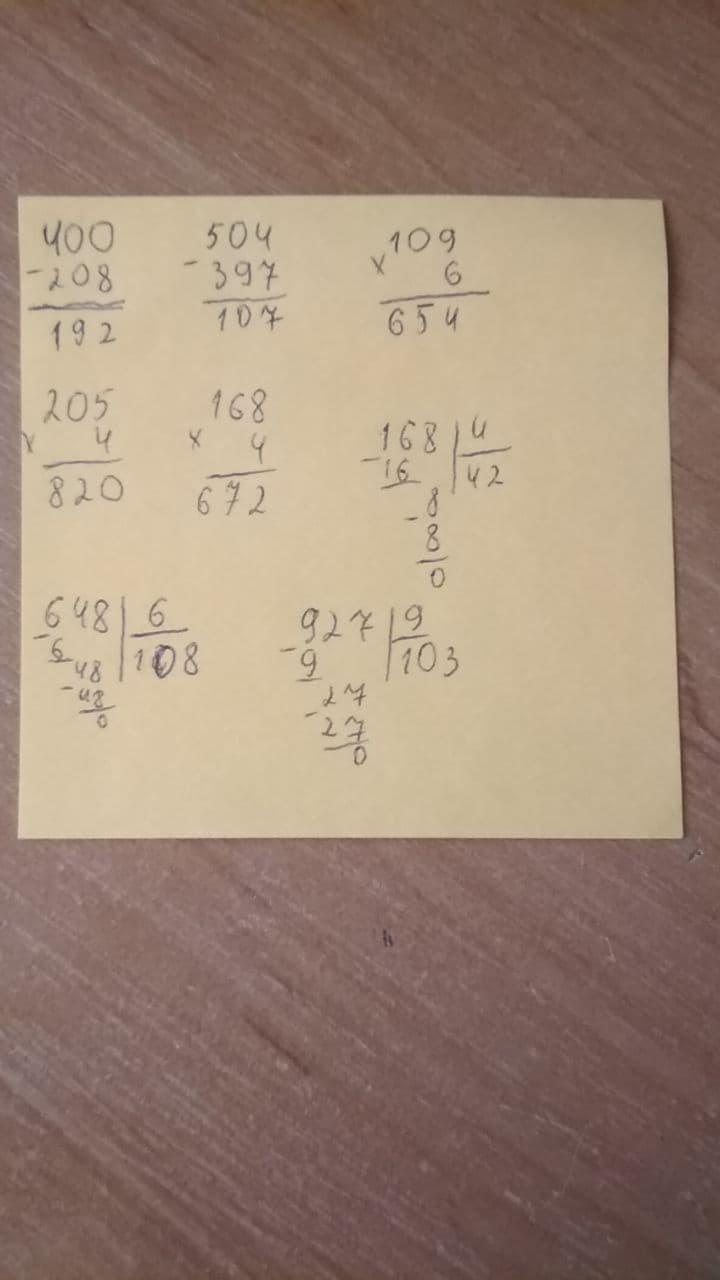 400 504 109
-208 - 397 x 6
192 107 654
205 168 168 | 4
x 4 x 4 -16 42
820 672 8
- 8
0
648 | 6 927 | 9
-6 108 -9 103
48 27
-48 - 27
0 0